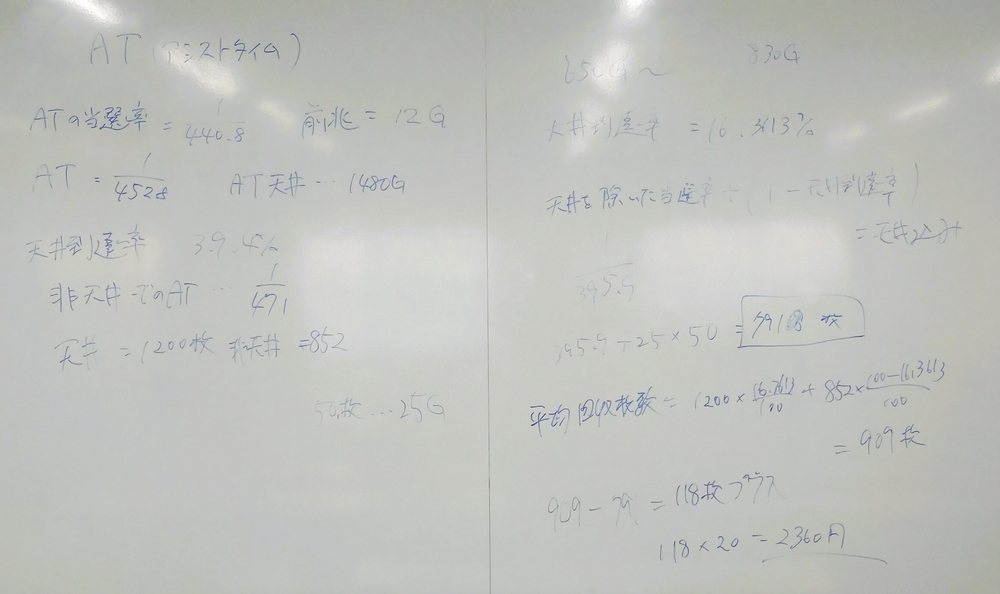 AT (アシストタイム)
ATの当選率 = 1/440.8 前兆 = 12G
AT = 1/452.8 AT天井…1480G
天井到達率 3.9.4%
非天井でのAT … 1/471
天井 = 1200枚 非天井 = 852
50枚…25G
650G〜 830G
天井到達率 = 16.3613%
天井を除いた当選率 ÷ (1 − 天井到達率)
= 天井込み
1/395.9
395.9 ÷ 25 × 50 = 791 枚
平均回収枚数 = 1200 × 16.3613/100 + 852 × 100−16.3613/100
= 909枚
909 − 791 = 118枚プラス
118 × 20 = 2360円